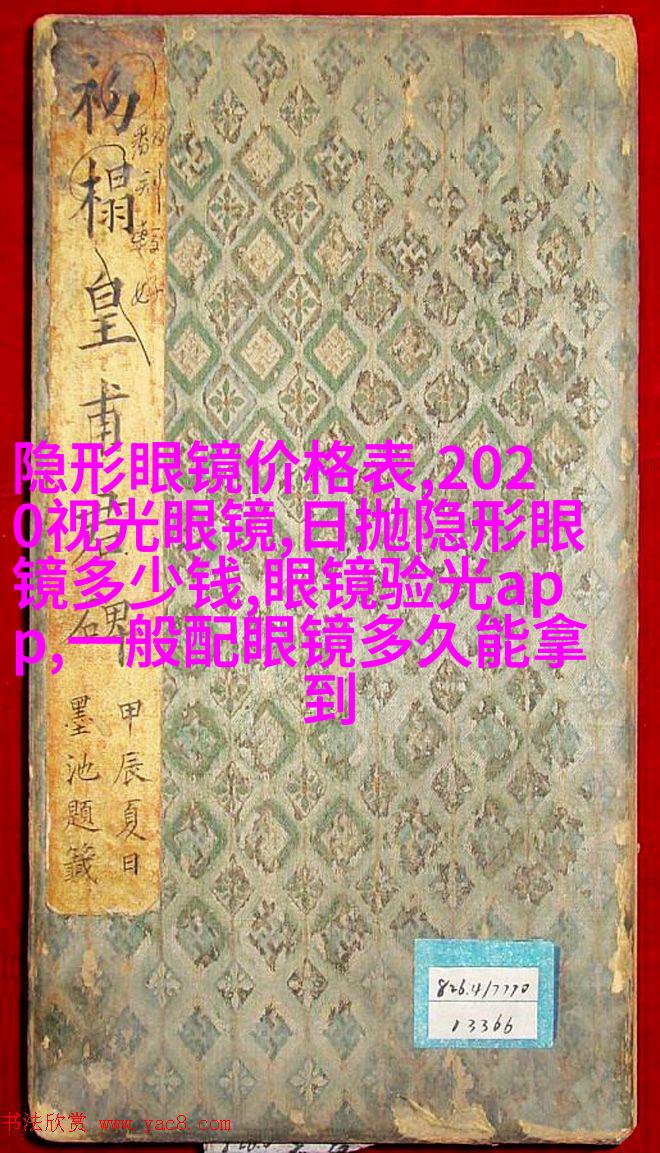 初榻皇甫君碑
甲辰夏日
墨池題籤
隐形眼镜价格表,202
0视光眼镜,日抛隐形眼
镜多少钱,眼镜验光ap
p,一般配眼镜多久能拿
到
826.4/7770
13366
书法欣赏 www.yac8.com